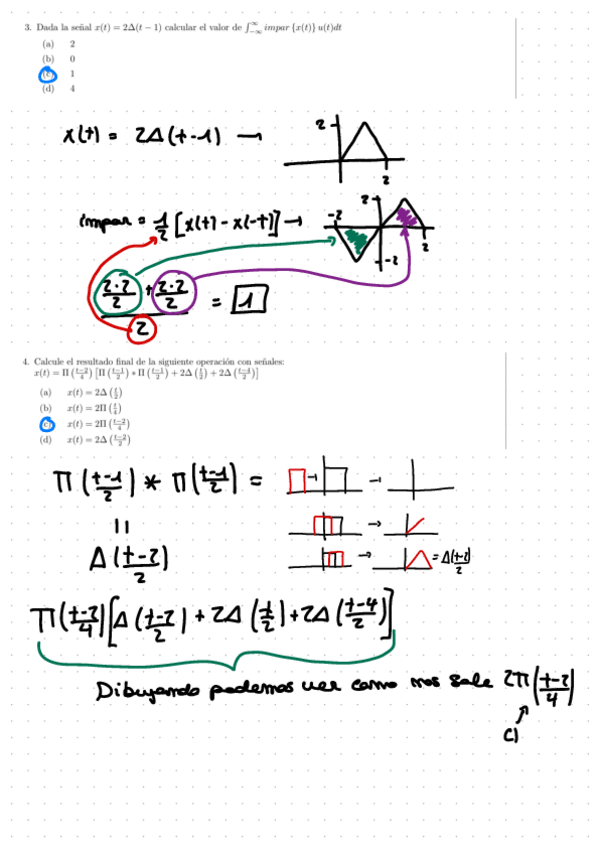 3. Dada la señal x(t) = 2Δ(t − 1) calcular el valor de ∫_{-∞}^{∞} impar {x(t)} u(t)dt
(a) 2
(b) 0
(c) 1
(d) 4
x(t) = 2Δ(t-1) →
2
2
impar = 1/2 [x(t) - x(-t)] →
-2
2
2
-2
(2·2/2 + 2·2/2)/2 = 1
4. Calcule el resultado final de la siguiente operación con señales:
x(t) = Π((t−2)/4) [Π((t−1)/2) ∗ Π((t−1)/2) + 2Δ(t/2) + 2Δ((t−4)/2)]
(a) x(t) = 2Δ(t/2)
(b) x(t) = 2Π(t/4)
(c) x(t) = 2Π((t−2)/4)
(d) x(t) = 2Δ((t−2)/2)
Π((t-1)/2) * Π((t-1)/2) = → →
=
→
Δ((t-2)/2)
→ = Δ(t-2)/2
Π((t-2)/4) [Δ((t-2)/2) + 2Δ(t/2) + 2Δ((t-4)/2)]
Dibujando podemos ver como nos sale 2Π((t-2)/4)
C)